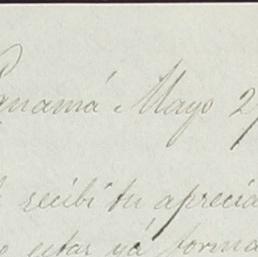 Panamá Mayo 2
recibí tu aprecia
estar yá forma